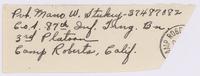 Pvt. Mano W. Stukey-37497082
Co. D. 87th Inf. Trng. Bn
3rd Platoon
Camp Roberts, Calif.